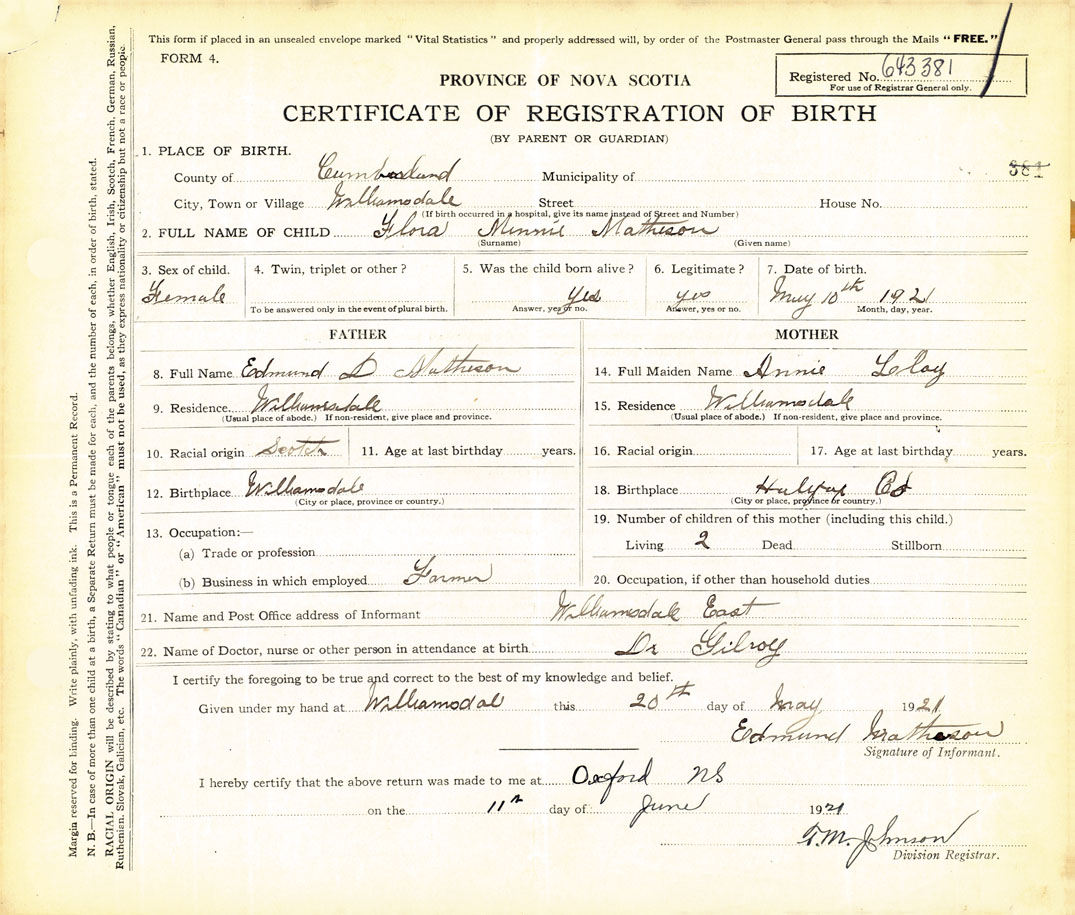 This form if placed in an unsealed envelope marked "Vital Statistics" and properly addressed will, by order of the Postmaster General pass through the Mails "FREE."
FORM 4.
Registered No. 643381
For use of Registrar General only.
PROVINCE OF NOVA SCOTIA
CERTIFICATE OF REGISTRATION OF BIRTH
(BY PARENT OR GUARDIAN)
1. PLACE OF BIRTH.
381
County of Cumberland Municipality of
City, Town or Village Williamsdale Street House No.
(If birth occurred in a hospital, give its name instead of Street and Number)
2. FULL NAME OF CHILD Flora Minnie Matheson
(Surname) (Given name)
3. Sex of child. 4. Twin, triplet or other? 5. Was the child born alive? 6. Legitimate? 7. Date of birth.
Female Yes yes May 10th 1921
To be answered only in the event of plural birth. Answer, yes or no. Answer, yes or no. Month, day, year.
FATHER
8. Full Name Edmund D Matheson
9. Residence Williamsdale
(Usual place of abode.) If non-resident, give place and province.
10. Racial origin Scotch 11. Age at last birthday years.
12. Birthplace Williamsdale
(City or place, province or country.)
13. Occupation:—
(a) Trade or profession
(b) Business in which employed Farmer
MOTHER
14. Full Maiden Name Annie
15. Residence Williamsdale
(Usual place of abode.) If non-resident, give place and province.
16. Racial origin 17. Age at last birthday years.
18. Birthplace Halifax Co
(City or place, province or country.)
19. Number of children of this mother (including this child.)
Living 2 Dead Stillborn
20. Occupation, if other than household duties
21. Name and Post Office address of Informant Williamsdale East
22. Name of Doctor, nurse or other person in attendance at birth Dr Gilroy
I certify the foregoing to be true and correct to the best of my knowledge and belief.
Given under my hand at Williamsdale this 20th day of May 1921
Edmund Matheson
Signature of Informant.
I hereby certify that the above return was made to me at Oxford NS
on the 11th day of June 1921
Johnson
Division Registrar.
Margin reserved for binding. Write plainly, with unfading ink. This is a Permanent Record.
N. B.—In case of more than one child at a birth, a Separate Return must be made for each, and the number of each, in order of birth, stated.
RACIAL ORIGIN will be described by stating to what people or tongue each of the parents belongs, whether English, Irish, Scotch, French, German, Russian,
Ruthenian, Slovak, Galician, etc. The words "Canadian" or "American" must not be used, as they express nationality or citizenship but not a race or people.